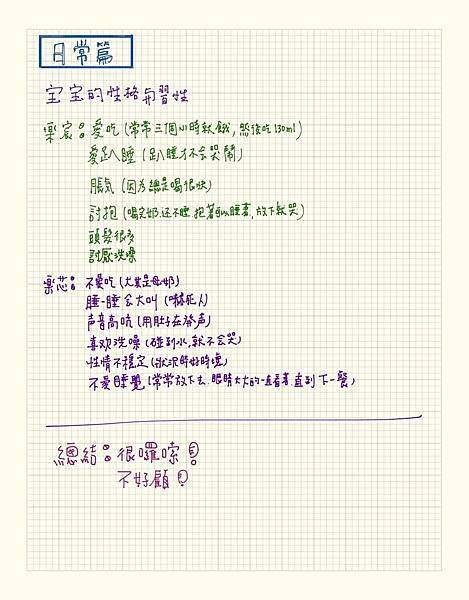 日常篇
宝宝的性格與習性
樂宸:愛吃(常常三個小時就餓,然後吃130ml)
愛趴睡(趴睡才不会哭鬧)
脹氣(因為總是喝很快)
討抱(喝完奶.还不睡.抱著可以睡著,放下就哭)
頭髮很多
討厭洗澡
樂芯:不愛吃(尤其是母奶)
睡-睡会大叫(嚇死人)
声音高吭(用肚子在發声)
喜欢洗澡(碰到水,就不会哭)
性情不穩定(狀況時好時壞)
不愛睡覺(常常放下去.眼睛大大的一直看著.直到下一餐)
總結:很囉嗦!
不好顧!